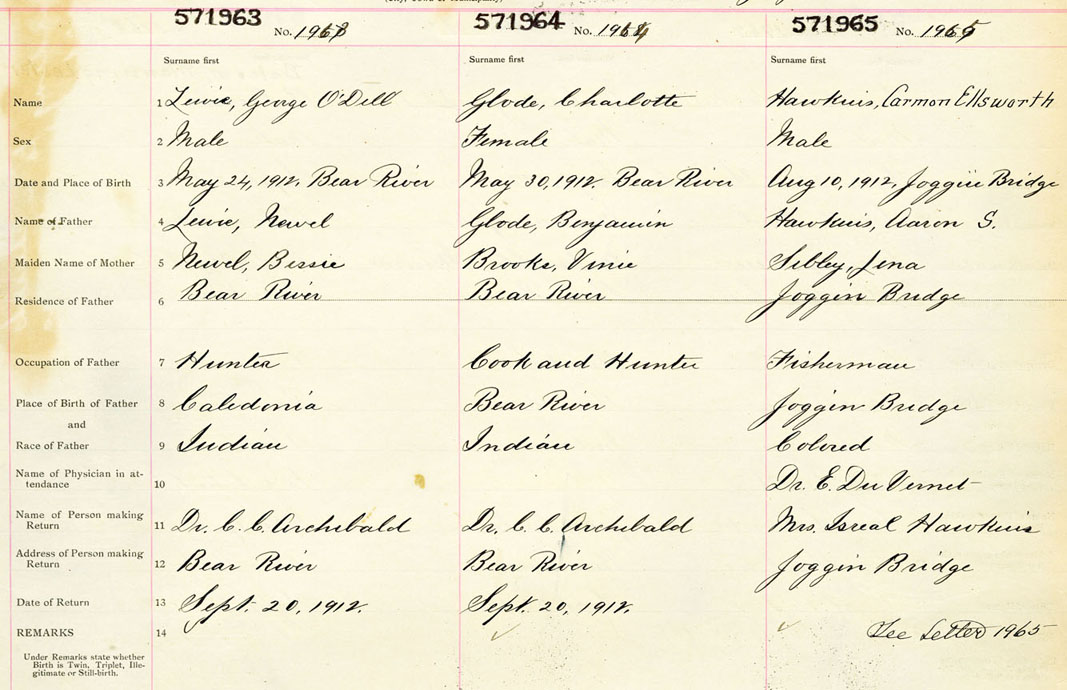 571963 No. 1963 571964 No. 1964 571965 No. 1965
Surname first Surname first Surname first
Name 1 Lewie, George O'Dell Glode, Charlotte Hawkins, Carmon Ellsworth
Sex 2 Male Female Male
Date and Place of Birth 3 May 24, 1912, Bear River May 30, 1912. Bear River Aug 10, 1912, Joggin Bridge
Name of Father 4 Lewie, Newel Glode, Benjamin Hawkins, Aaron S.
Maiden Name of Mother 5 Newel, Bessie Brooks, Vinie Sibley, Lena
Residence of Father 6 Bear River Bear River Joggin Bridge
Occupation of Father 7 Hunter Cook and Hunter Fisherman
Place of Birth of Father 8 Caledonia Bear River Joggin Bridge
and
Race of Father 9 Indian Indian Colored
Name of Physician in at-
tendance 10 Dr. E. Du Vernet
Name of Person making
Return 11 Dr. C. C. Archibald Dr. C. C. Archibald Mrs. Isreal Hawkins
Address of Person making
Return 12 Bear River Bear River Joggin Bridge
Date of Return 13 Sept. 20, 1912. Sept. 20, 1912.
REMARKS 14 See Letter 1965
Under Remarks state whether
Birth is Twin, Triplet, Ille-
gitimate or Still-birth.